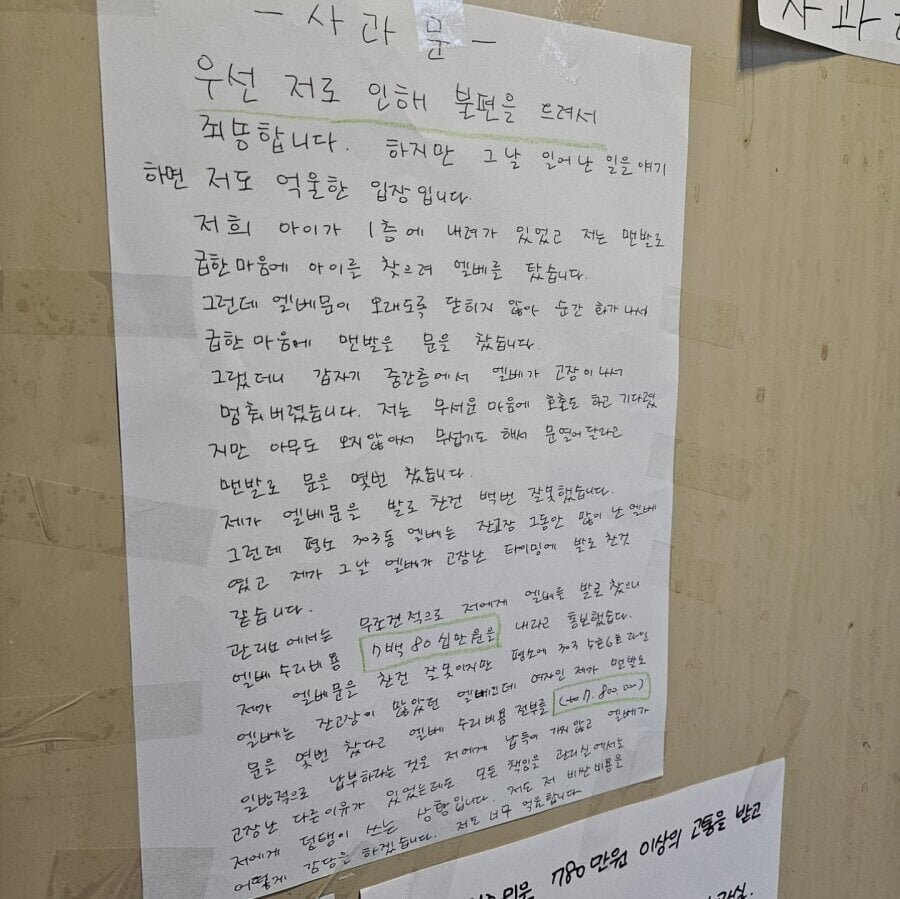 - 사 과 문 -
우선 저로 인해 불편을 드려서
죄송합니다. 하지만 그날 일어난 일을 얘기
하면 저도 억울한 입장입니다.
저희 아이가 1층에 내려가 있었고 저는 맨발로
급한 마음에 아이를 찾으려 엘베를 탔습니다.
그런데 엘베문이 오래도록 닫히지 않아 순간 화가 나서
급한 마음에 맨발은 문을 찼습니다.
그랬더니 갑자기 중간층에서 엘베가 고장이 나서
멈춰버렸습니다. 저는 무서운 마음에 호출도 하고 기다렸
지만 아무도 오지 않아서 무섭기도 해서 문열어 달라고
맨발로 문을 몇번 찼습니다.
제가 엘베문을 발로 찬건 백번 잘못했습니다.
그런데 평소 303동 엘베는 잔고장 그동안 많이 난 엘베
였고 제가 그날 엘베가 고장난 타이밍에 발로 찬것
같습니다.
관리소에서는 무조건적으로 저에게 엘베를 발로 찼으니
엘베 수리비용 7백 80 십만원을 내라고 통보했습니다.
제가 엘베문을 찬건 잘못이지만 평소에 303 5호6호 라인
엘베는 잔고장이 많았던 엘베인데 여자인 제가 맨발로
문을 몇번 찼다고 엘베 수리비용 전부를 (7.800.000)
일방적으로 납부하라는 것은 저에게 납득이 가지 않고 엘베가
고장난 다른이유가 있었는데도 모든 책임을 관리실에서는
저에게 덤탱이 쓰는 상황입니다. 저도 저 비싼 비용을
어떻게 감당을 하겠습니다. 저도 너무 억울합니다
사과
780만원 이상의 고통을 받고